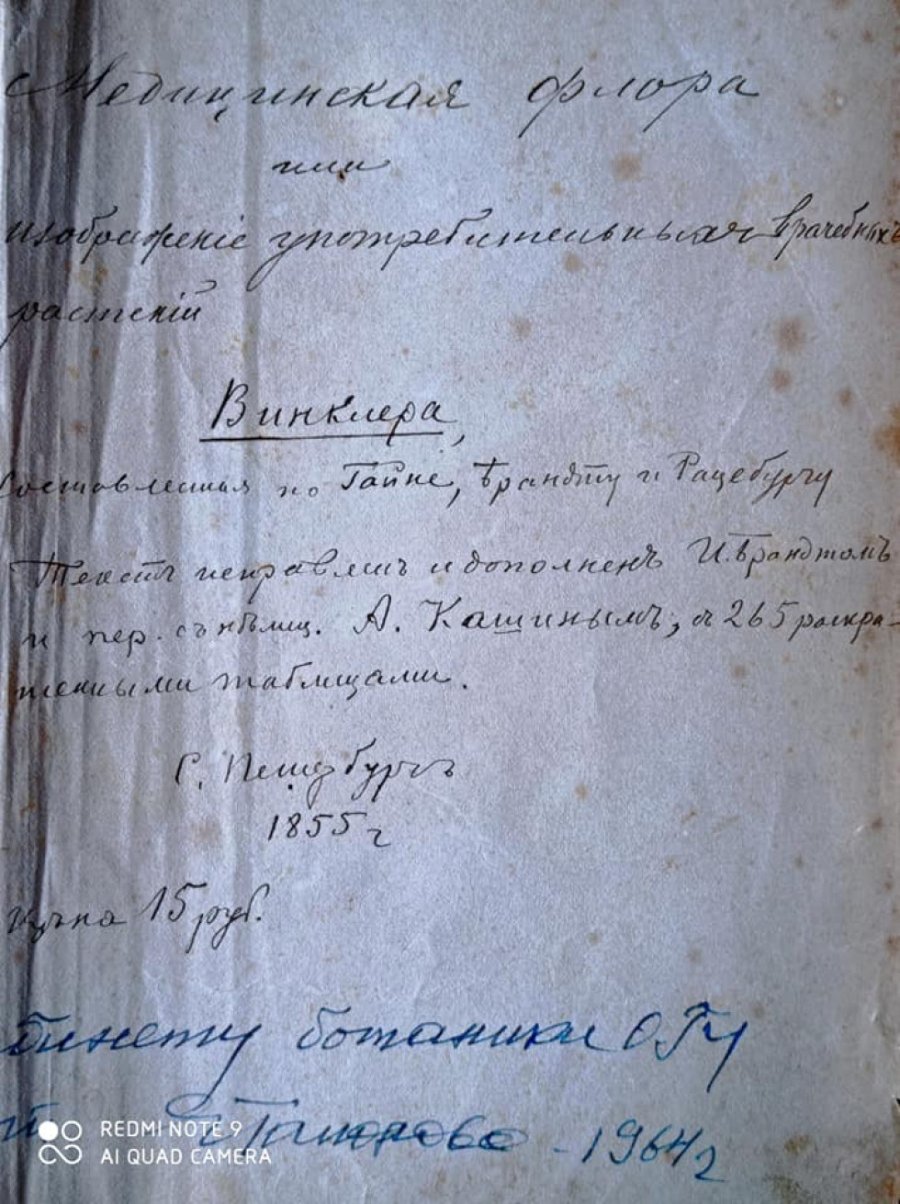 Медицинская флора
или
изображенiе употребительныхъ врачебныхъ
растенiй
Винклера,
составленная по Гайне, Брандту и Рацебургу
Текстъ исправленъ и дополненъ И. Брандтомъ
и пер. съ нѣмец. А. Кашинымъ, съ 265 раскра-
шенными таблицами.
С. Петербургъ
1855 г
Цѣна 15 руб.
бинету ботаники ОГУ
- 1964 г
REDMI NOTE 9
AI QUAD CAMERA